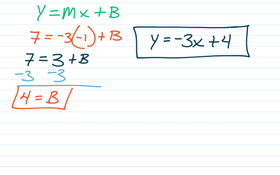 y = mx + B
7 = -3(-1) + B
7 = 3 + B
-3 -3
4 = B
y = -3x + 4